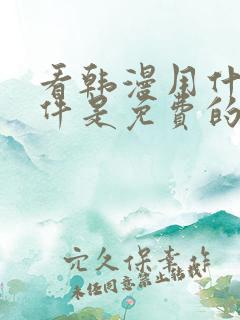 看韩漫用什
件是免费的
穴久保幸作
未经同意禁止转载